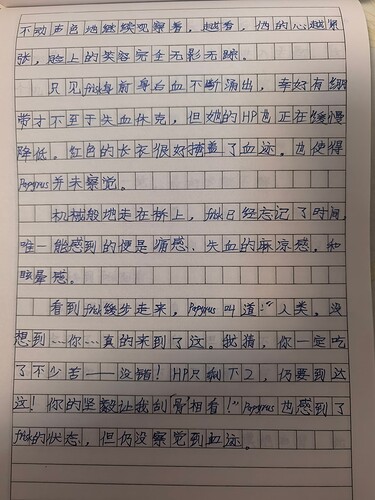 不动声色地继续观察着，越看，他的心越紧
张，脸上的笑容完全无影无踪。
只见frisk身前身后血不断涌出，幸好有绷
带才不至于失血休克，但她的HP也正在缓慢
降低。红色的长衣很好掩盖了血迹。也使得
Papyrus并未察觉。
机械般地走在桥上，frisk已经忘记了时间，
唯一能感到的便是痛感、失血的麻凉感。和
眩晕感。
看到frisk缓步走来，Papyrus叫道："人类。没
想到……你……真的来到了这。我猜，你一定吃
了不少苦——没错！HP只剩下2，仍要到达
这！你的坚毅让我刮"骨"相看！"Papyrus也感到了
frisk的状态，但仍没察觉到血迹。